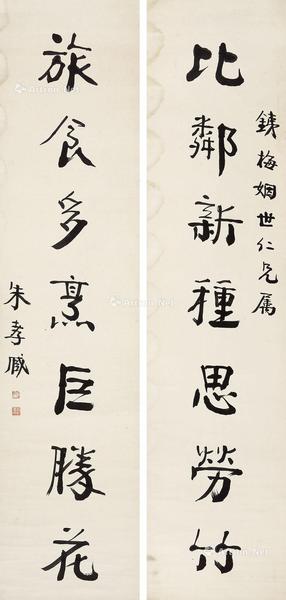 銕梅姻世仁兄属
比鄰新種思勞竹
旅食多烹巨勝花
朱孝臧